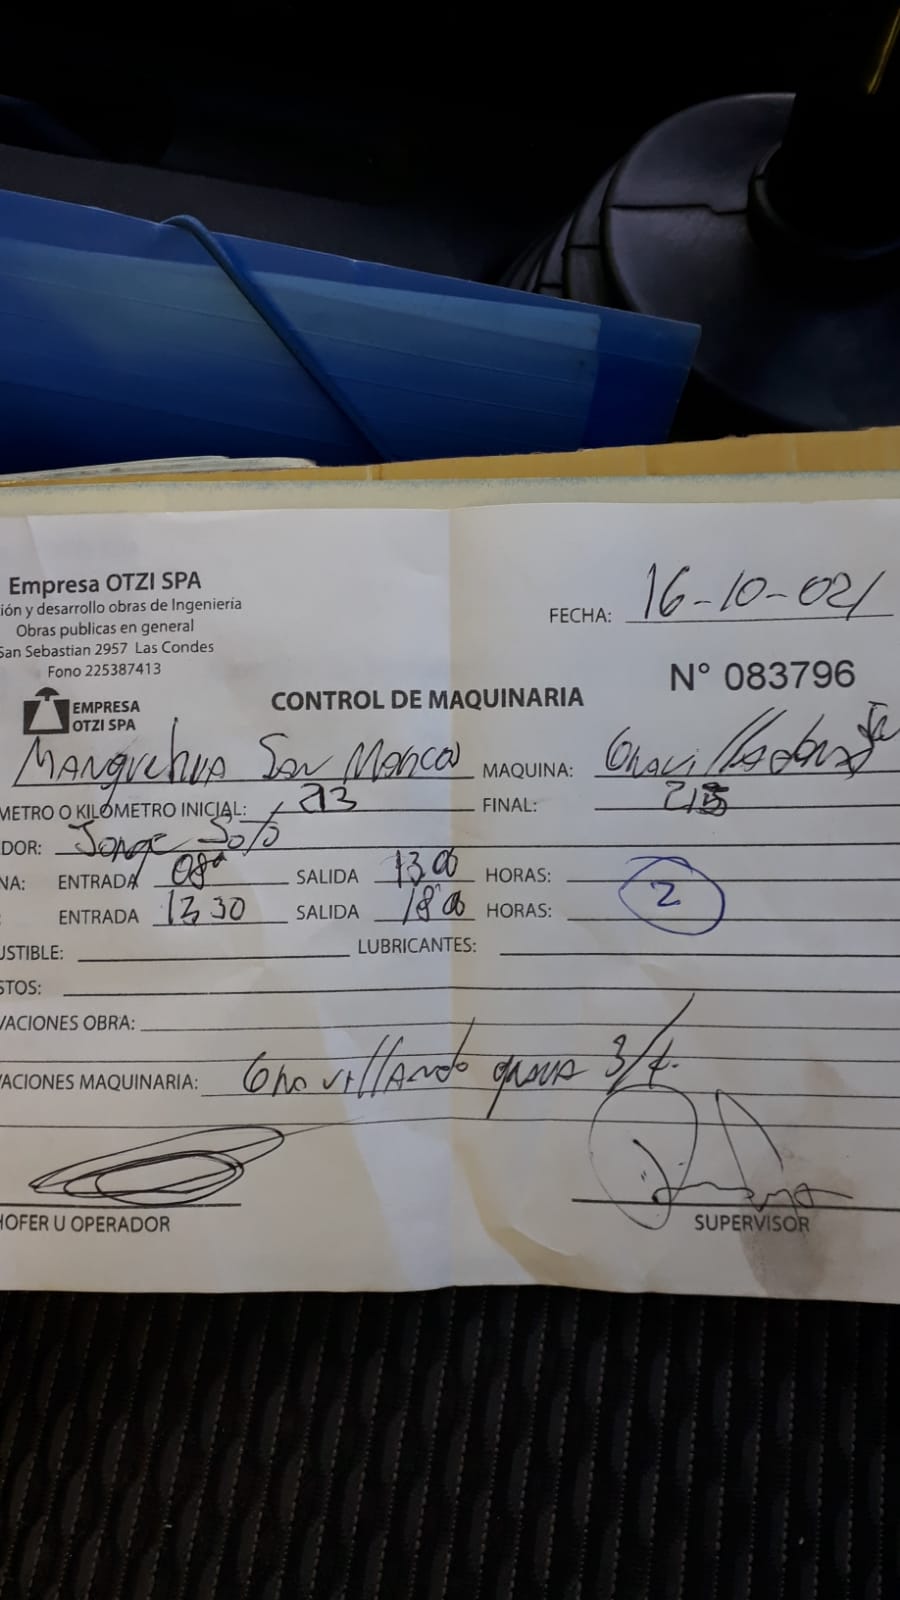 Empresa OTZI SPA
ión y desarrollo obras de Ingeniería
Obras publicas en general
San Sebastian 2957 Las Condes
Fono 225387413
FECHA: 16-10-021
N° 083796
EMPRESA
OTZI SPA
CONTROL DE MAQUINARIA
Manquehua San Marcos MAQUINA:
METRO O KILÓMETRO INICIAL: 213 FINAL: 215
DOR: Jorge Soto
NA: ENTRADA 08 SALIDA 13 00 HORAS:
ENTRADA 13 30 SALIDA 18 00 HORAS: 2
USTIBLE: LUBRICANTES:
STOS:
VACIONES OBRA:
VACIONES MAQUINARIA: Gravillando grava 3/4.
HOFER U OPERADOR SUPERVISOR